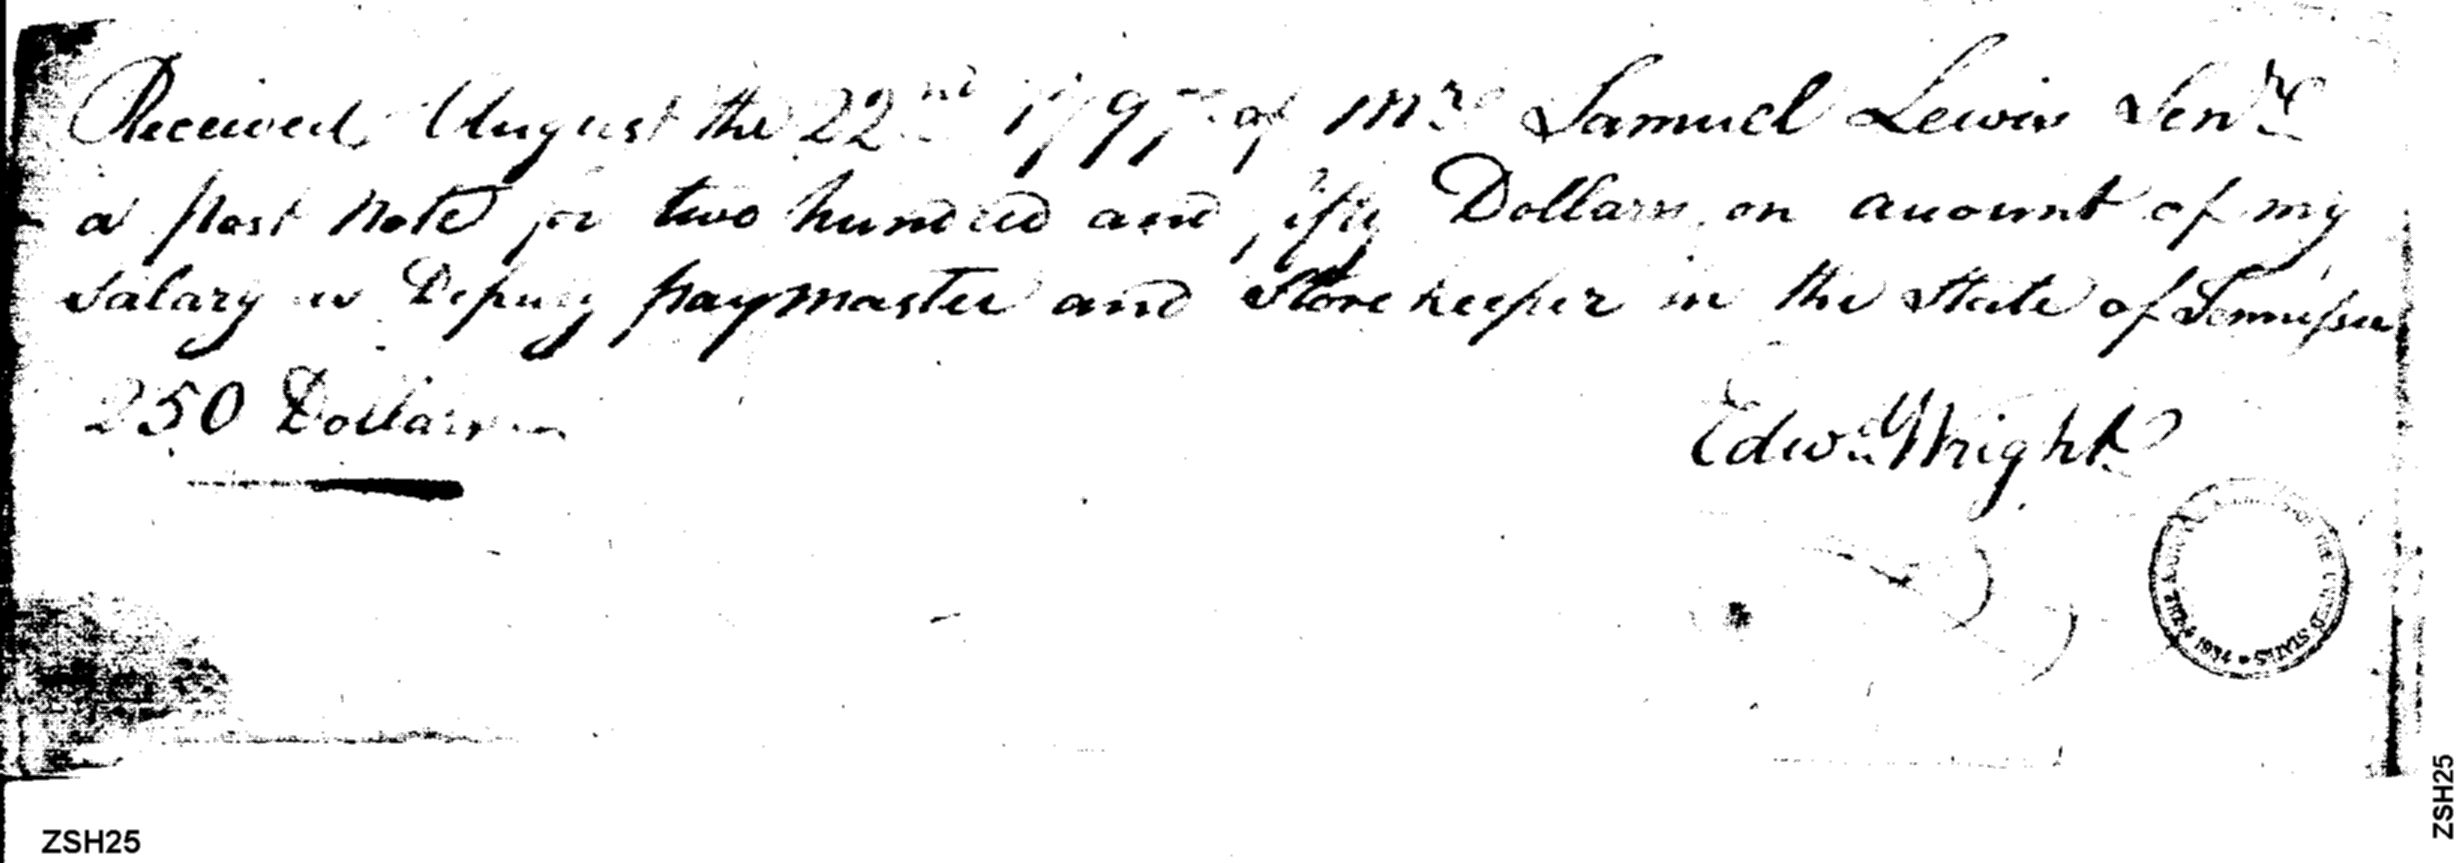 Received August the 22nd 1797 of Mr Samuel Lewis Senr
a post Note for two hundred and fifty Dollars on account of my
salary as Deputy paymaster and Store keeper in the State of Tennessee
250 Dollars
Edwd Wright
THE UNITED STATES * 1934 * THE
ZSH25
ZSH25